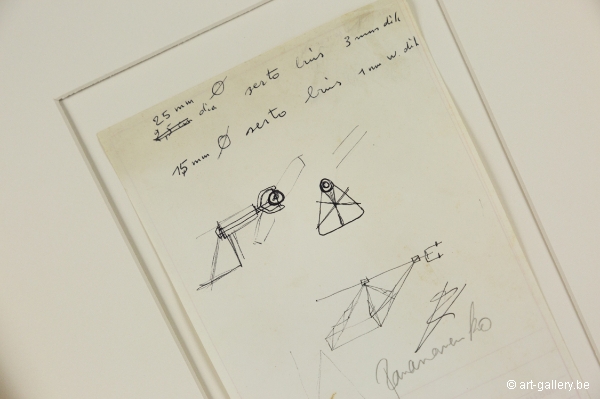 25 mm Ø serto buis 3 mm dik
2,5 mm dia
15 mm Ø serto buis 1 mm w. dik
Panamarenko
© art-gallery.be